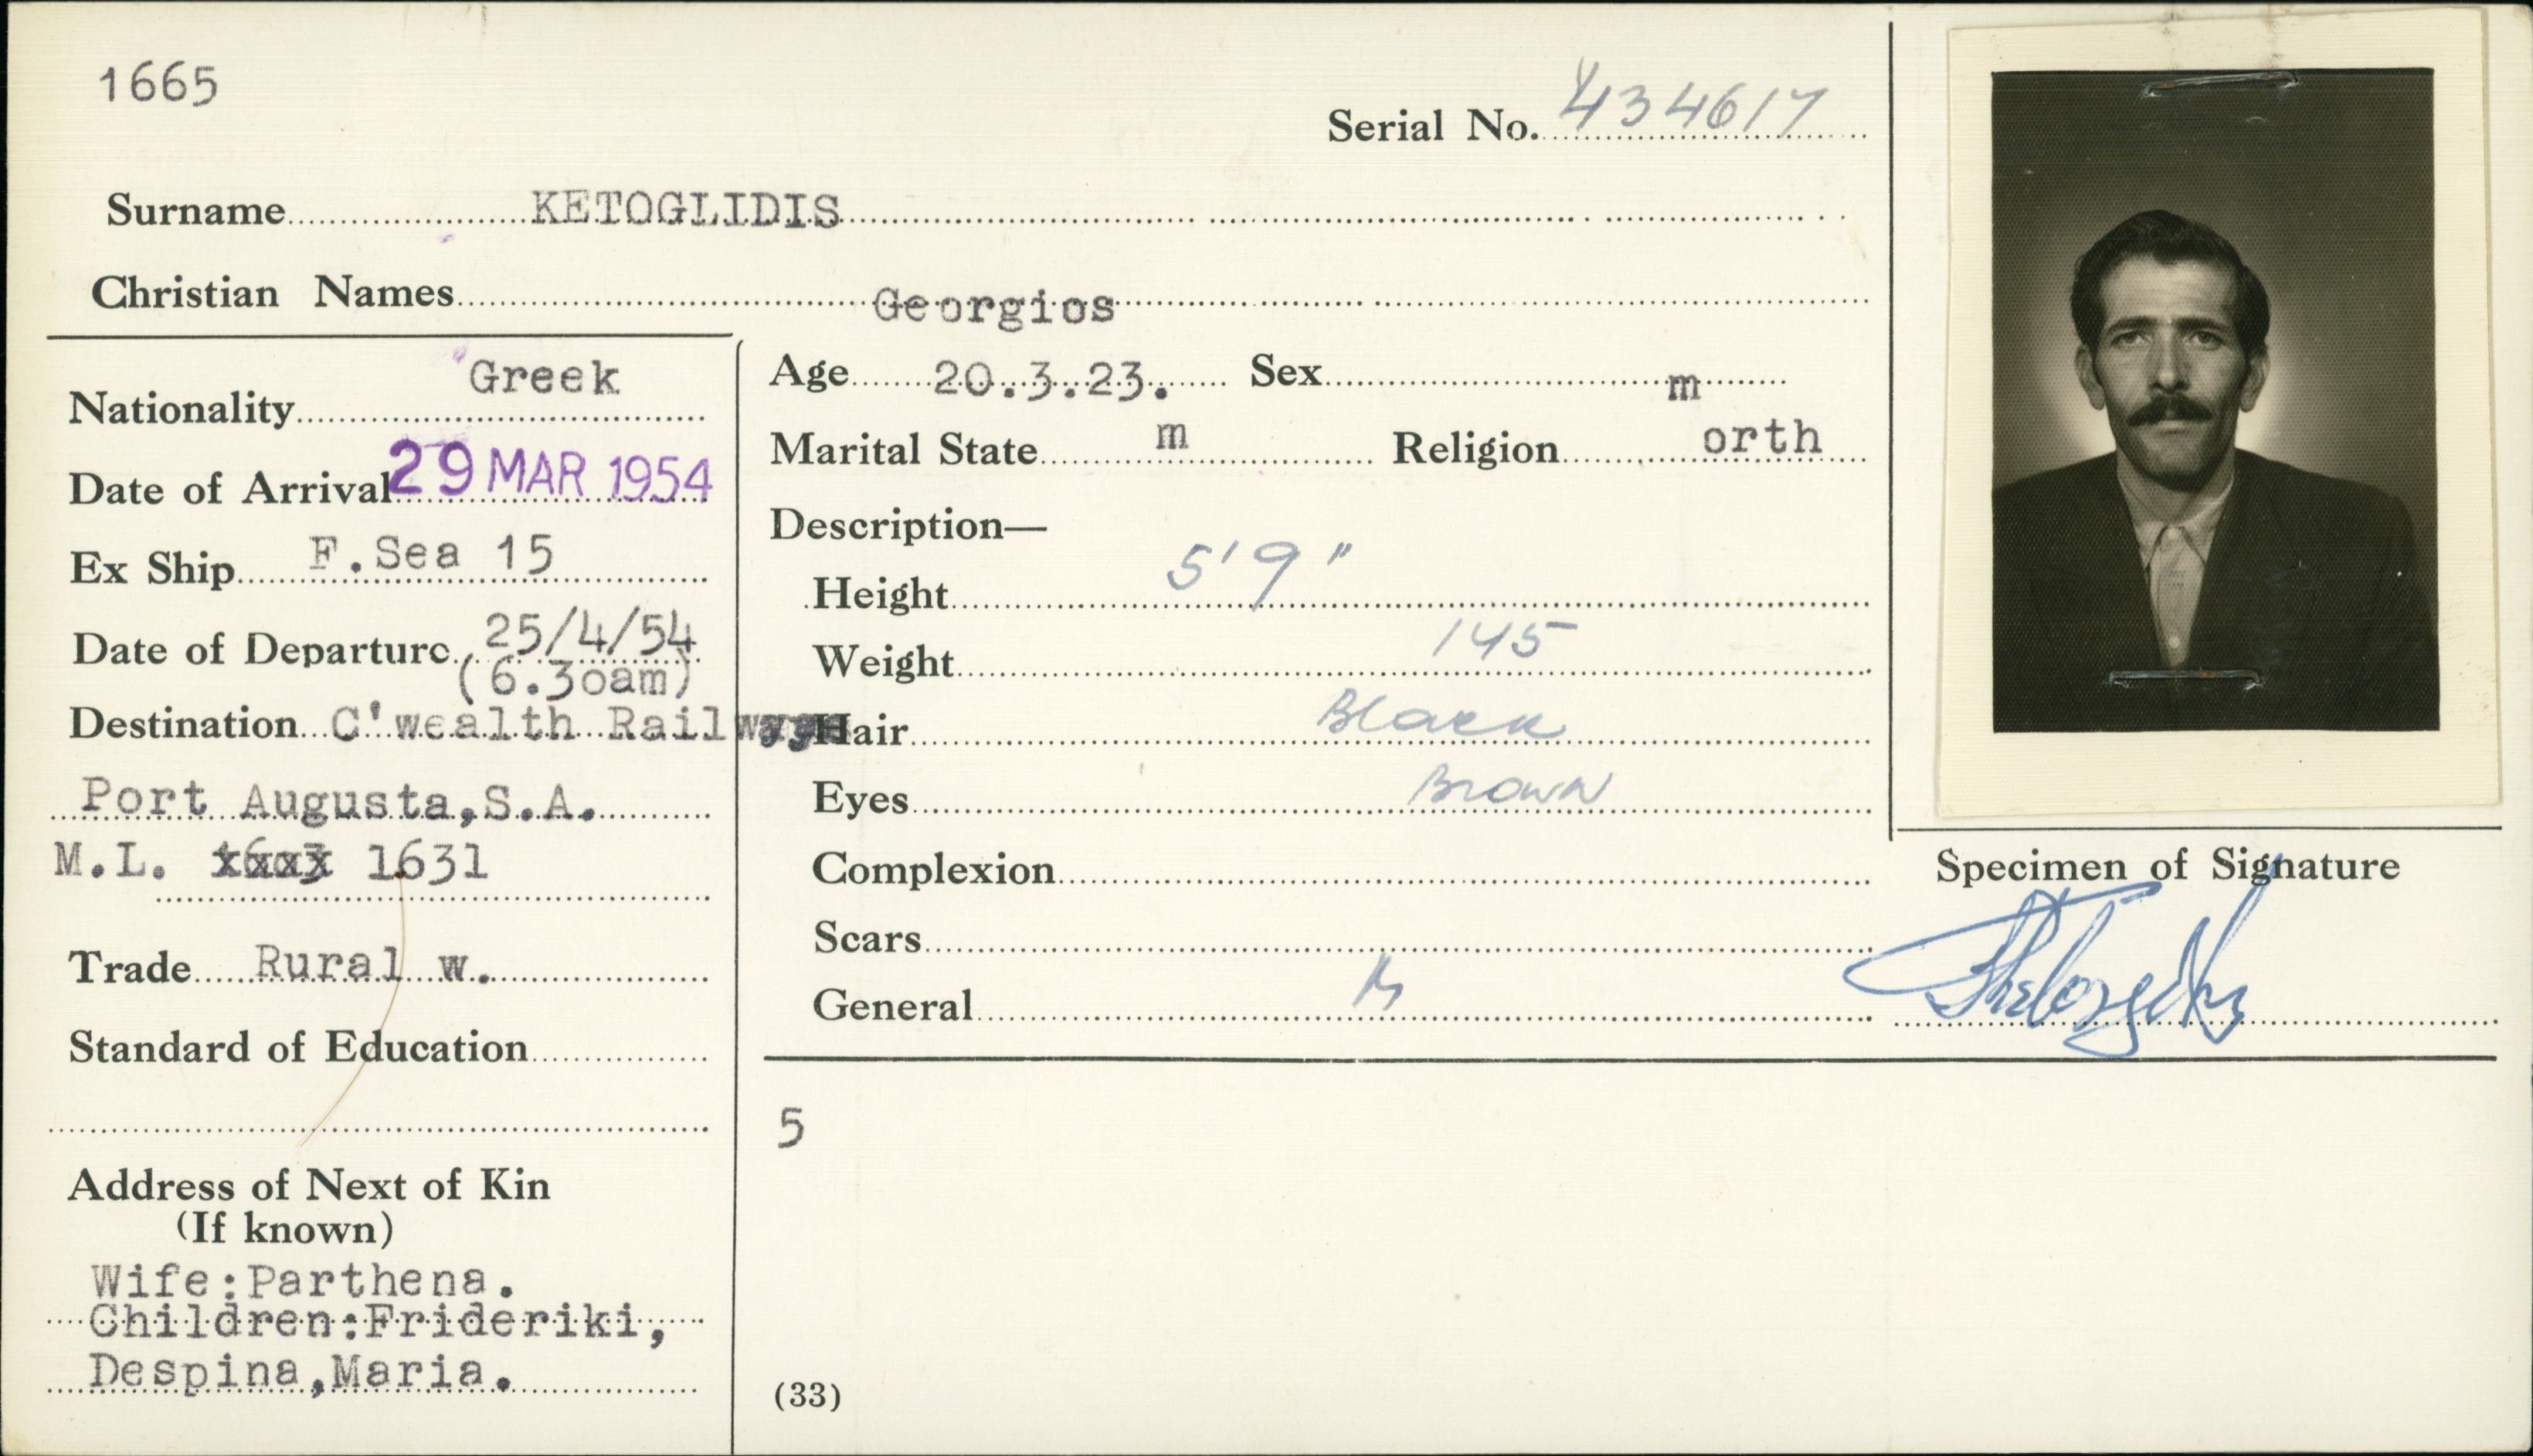 1665
Serial No. 434617
Surname KETOGLIDIS
Christian Names Georgios
Nationality Greek
Date of Arrival 29 MAR 1954
Ex Ship F.Sea 15
Date of Departure 25/4/54
(6.3oam)
Destination C'wealth Railways
Port Augusta,S.A.
M.L. 1631
Trade Rural w.
Standard of Education
Address of Next of Kin
(If known)
Wife:Parthena.
Children:Frideriki,
Despina,Maria.
Age 20.3.23. Sex m
Marital State m Religion orth
Description—
Height 5'9"
Weight 145
Hair Black
Eyes Brown
Complexion
Scars
General
5
(33)
Specimen of Signature